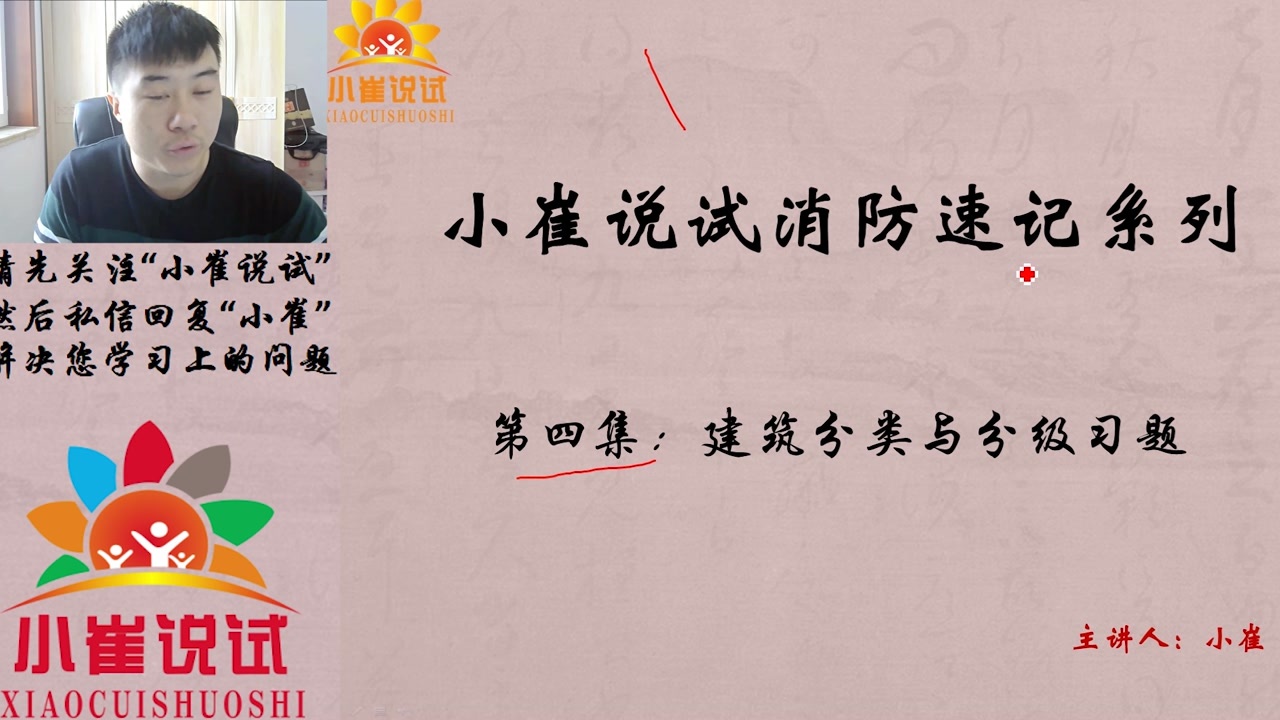 小崔说试
XIAOCUISHUOSHI
小崔说试消防速记系列
请先关注“小崔说试”
然后私信回复“小崔”
解决您学习上的问题
第四集：建筑分类与分级习题
小崔说试
XIAOCUISHUOSHI
主讲人：小崔